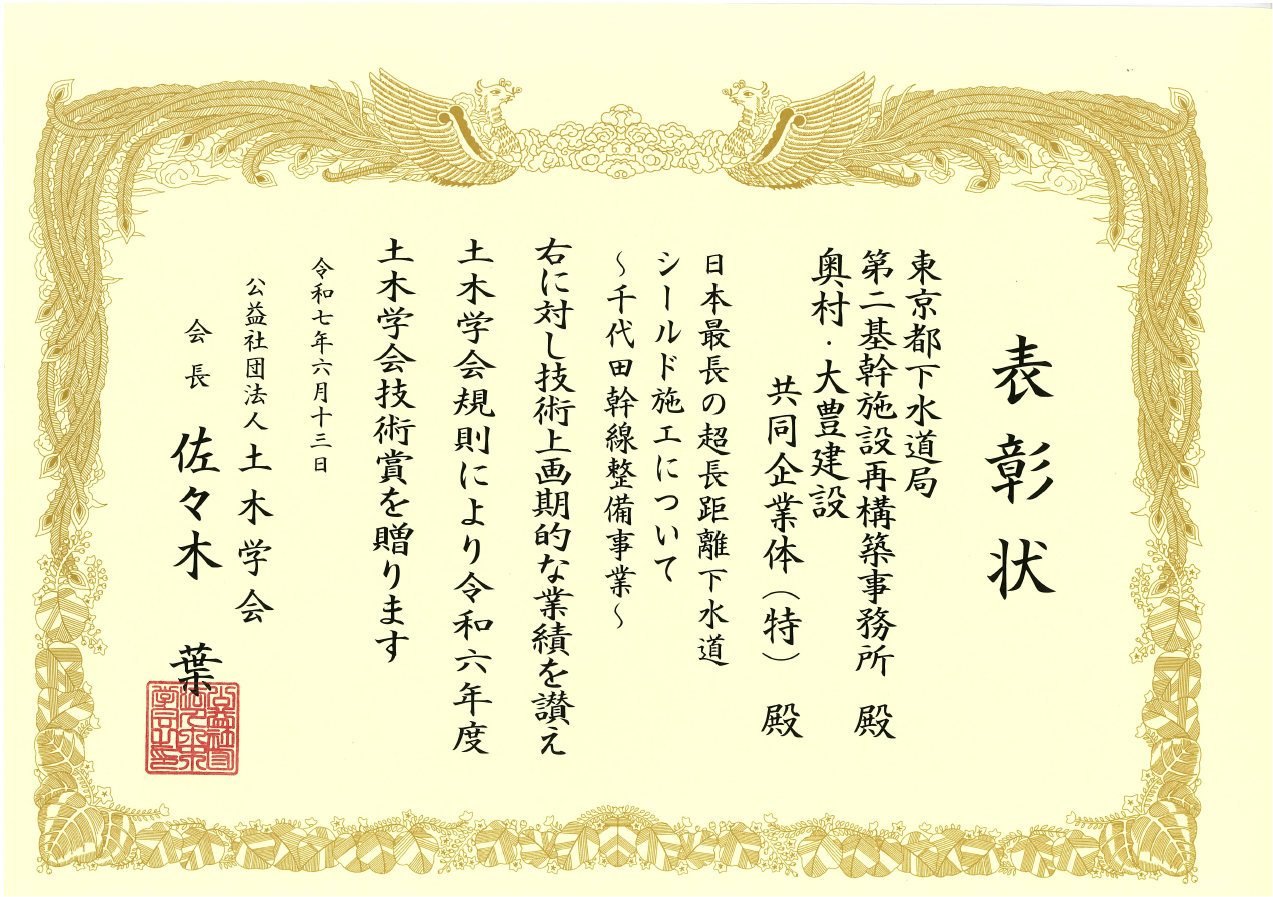 表彰状
東京都下水道局
第二基幹施設再構築事務所 殿
奥村・大豊建設
共同企業体（特） 殿
日本最長の超長距離下水道
シールド施工について
～千代田幹線整備事業～
右に対し技術上画期的な業績を讃え
土木学会規則により令和六年度
土木学会技術賞を贈ります
令和七年六月十三日
公益社団法人 土木学会
会長 佐々木 葉